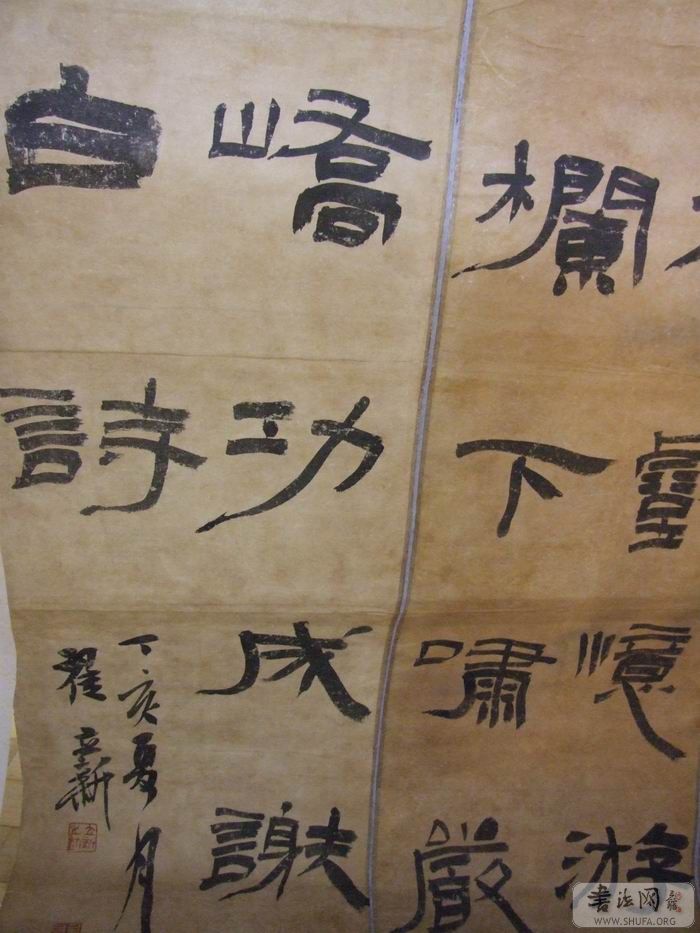 臺憶游
欄下嘯嚴
嶠功成謝
白詩
丁亥夏月
翟立新
書法网
WWW.SHUFA.ORG